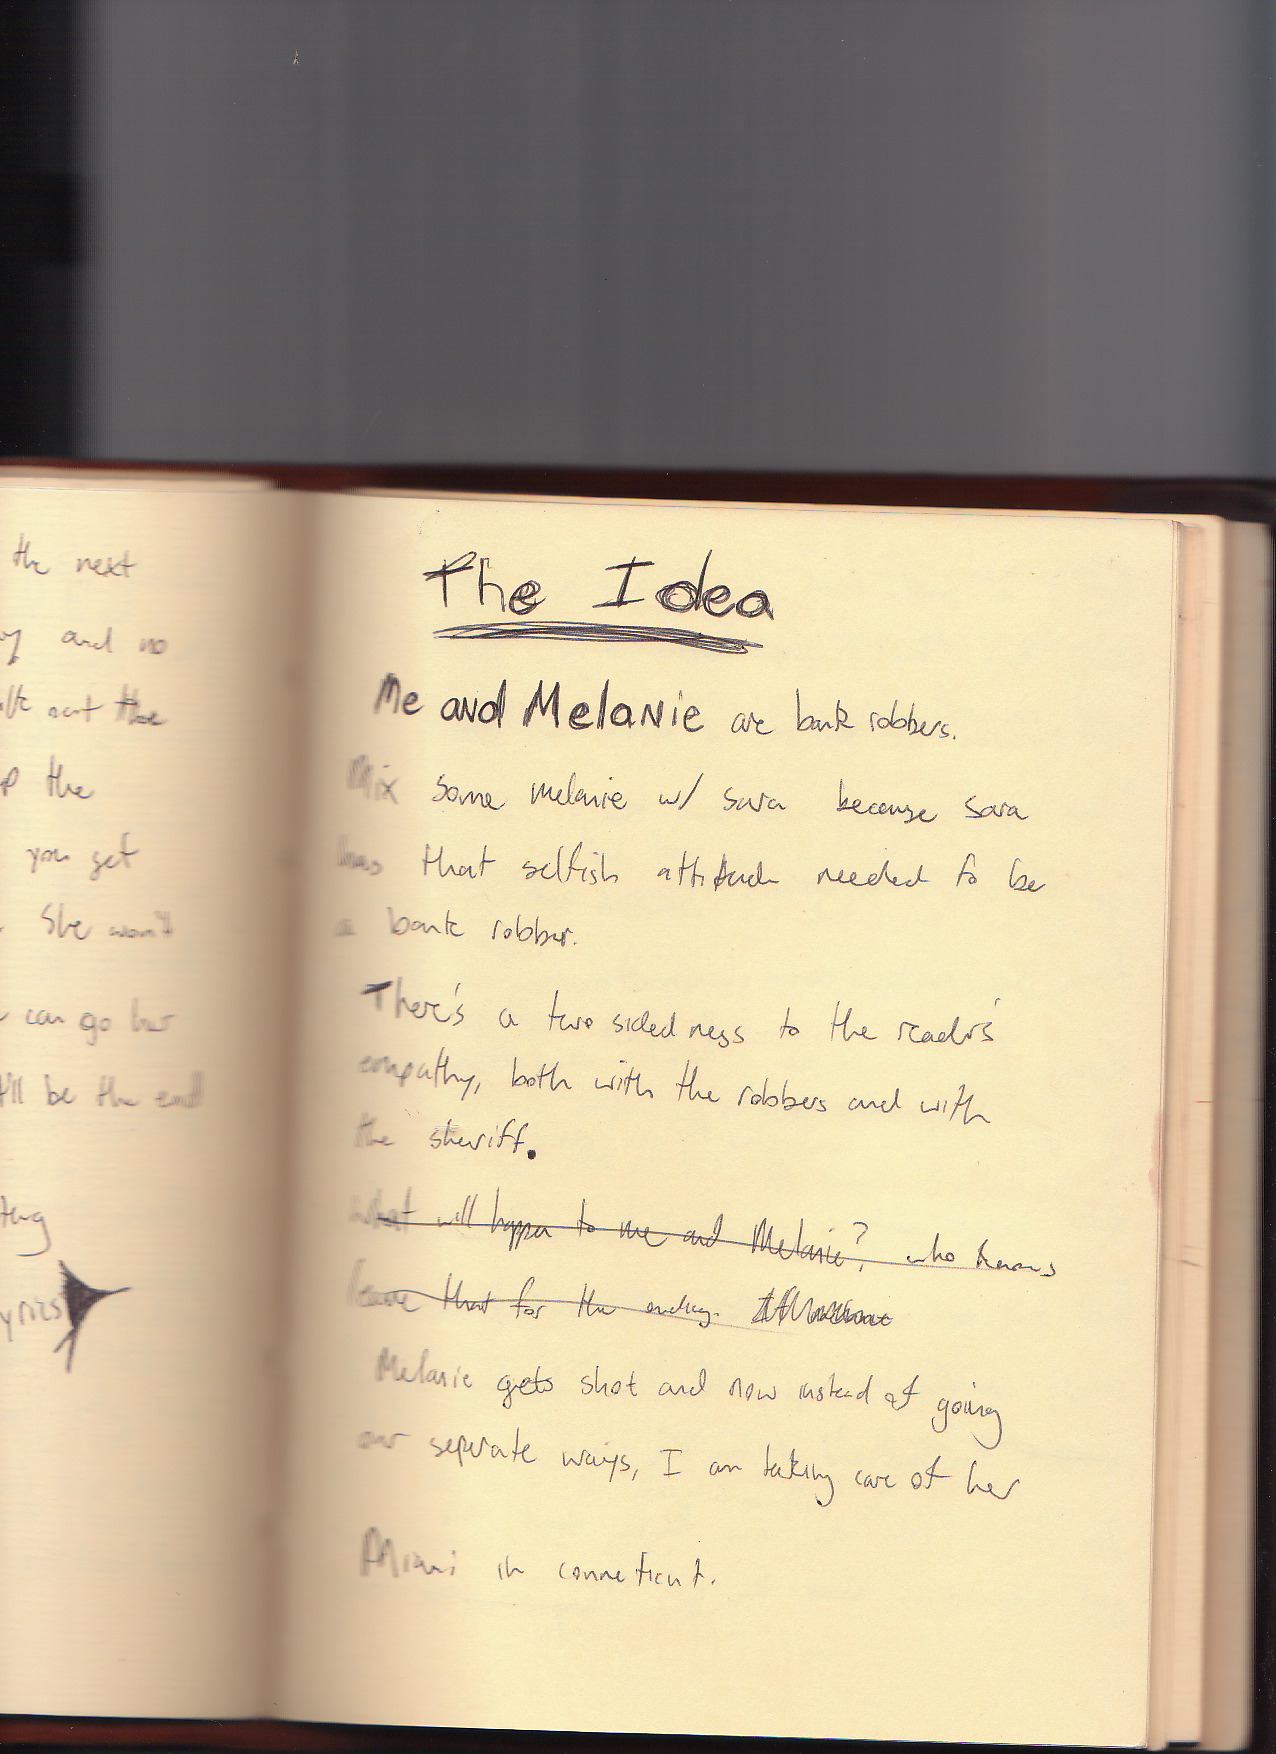 the next
and no
out the
the
you get
She won't
can go her
'll be the end
The Idea
Me and Melanie are bank robbers.
Mix some melanie w/ sara because sara
has that selfish attitude needed to be
a bank robber.
There's a two sidedness to the reader's
empathy, both with the robbers and with
the sheriff.
What will happen to me and Melanie? who knows
leave that for the ending.
Melanie gets shot and now instead of going
our seperate ways, I am taking care of her
Miami in conneticut.